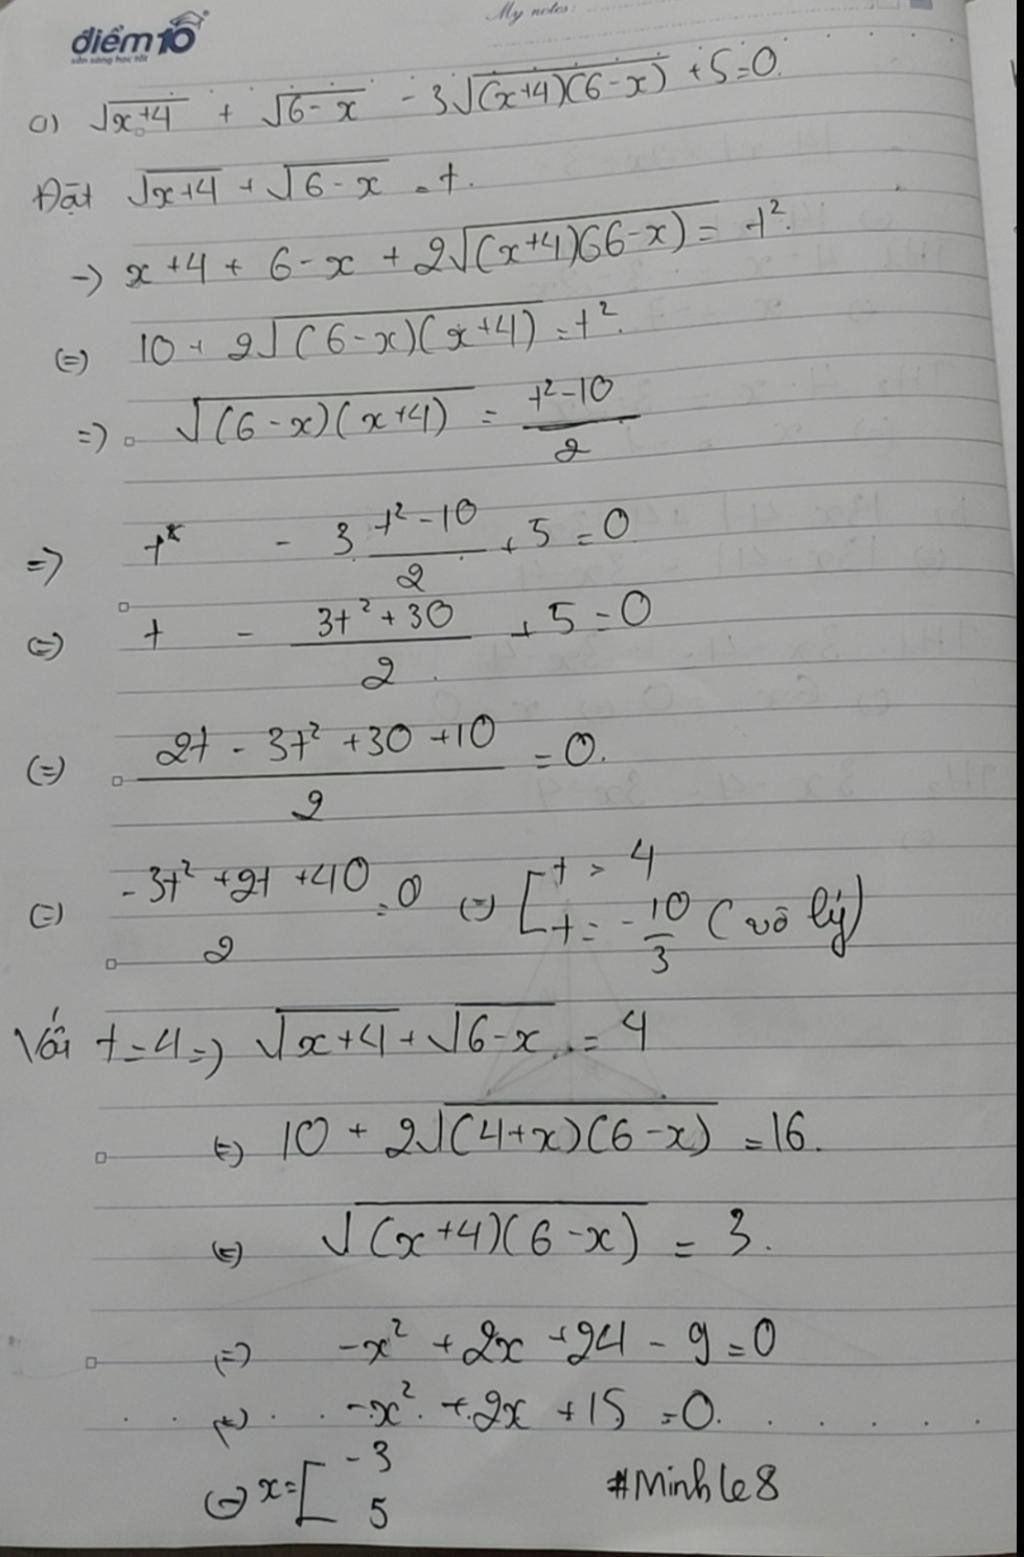 My notes:
điểm10
sẵn sàng học tốt
a) √(x+4) + √(6-x) - 3√((x+4)(6-x)) +5=0.
Đặt √(x+4) + √(6-x) = t.
-> x+4 + 6-x + 2√((x+4)(6-x)) = t².
(=) 10 + 2√((6-x)(x+4)) = t².
=> √((6-x)(x+4)) = (t²-10)/2
=> t - 3.(t²-10)/2 + 5 = 0
(=) t - (3t²+30)/2 + 5 = 0
(=) (2t - 3t² +30 +10)/2 = 0.
(=) (-3t² +2t +40)/2 = 0 (=) [t = 4
t = -10/3 (vô lý)
Với t=4 => √(x+4) + √(6-x) = 4
(=) 10 + 2√((4+x)(6-x)) = 16.
(=) √((x+4)(6-x)) = 3.
(=) -x² + 2x +24 - 9 = 0
(=) -x² + 2x + 15 = 0.
(=) x = [-3
5
#Minhle8